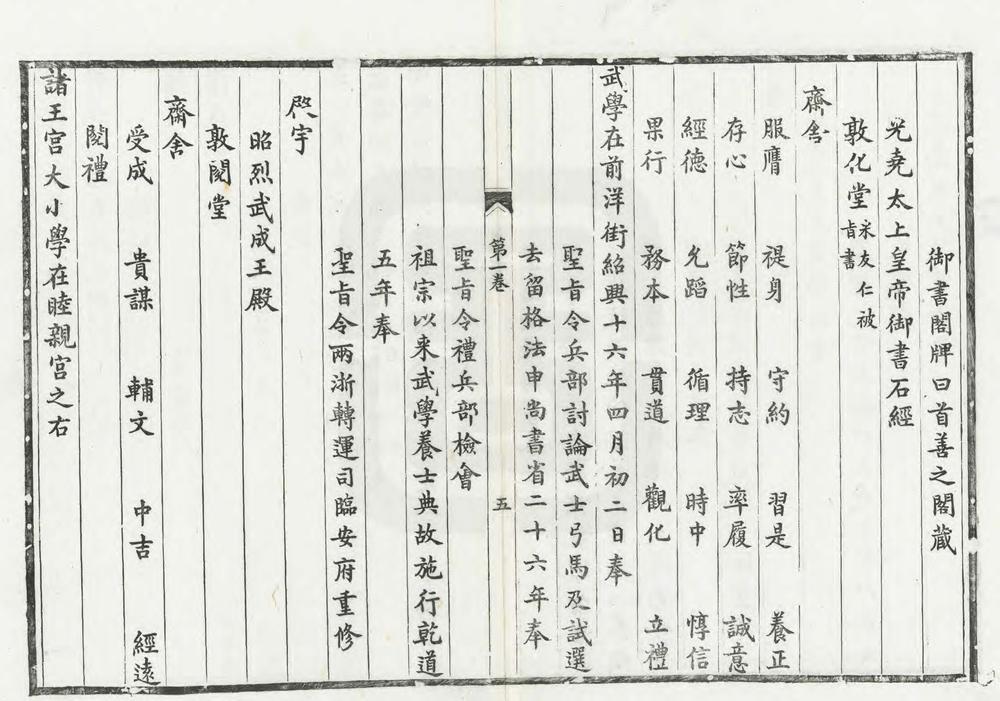 御書閣牌曰首善之閣藏
光堯太上皇帝御書石經
敦化堂 宋友仁被
旨書
齋舍
服膺 禔身 守約 習是 養正
存心 節性 持志 率履 誠意
經德 允蹈 循理 時中 惇信
果行 務本 貫道 觀化 立禮
武學在前洋街紹興十六年四月初二日奉
聖旨令兵部討論武士弓馬及試選
去留格法申尚書省二十六年奉
第一卷 五
聖旨令禮兵部檢會
祖宗以来武學養士典故施行乾道
五年奉
聖旨令兩浙轉運司臨安府重修
殿宇
昭烈武成王殿
敦閱堂
齋舍
受成 貴謀 輔文 中吉 經遠
閱禮
諸王宮大小學在睦親宮之右